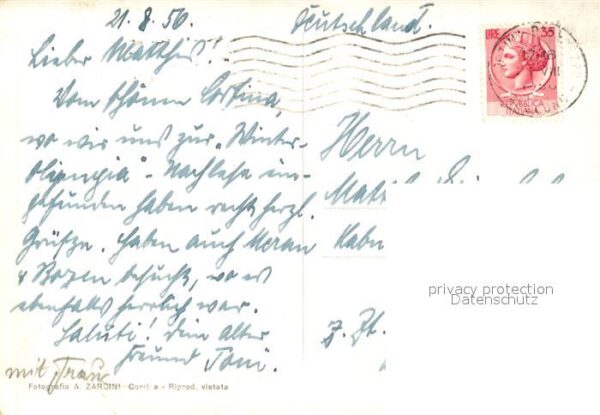 21.8.56
Deutschland.
Lieber Matthis!
Vom schönen Cortina,
wo wir uns zur „Winter-
olympia“-Nachlese ein-
gefunden haben recht herzl.
Grüße. Haben auch Meran
& Bozen besucht, wo es
ebenfalls herrlich war.
Saluti! Dein alter
Freund Toni.
mit Frau
Fotografia A. ZARDINI - Cortina - Riprod. vietata
LIRE 35
REPUBBLICA
ITALIANA
Herrn
z. Zt.
privacy protection
Datenschutz